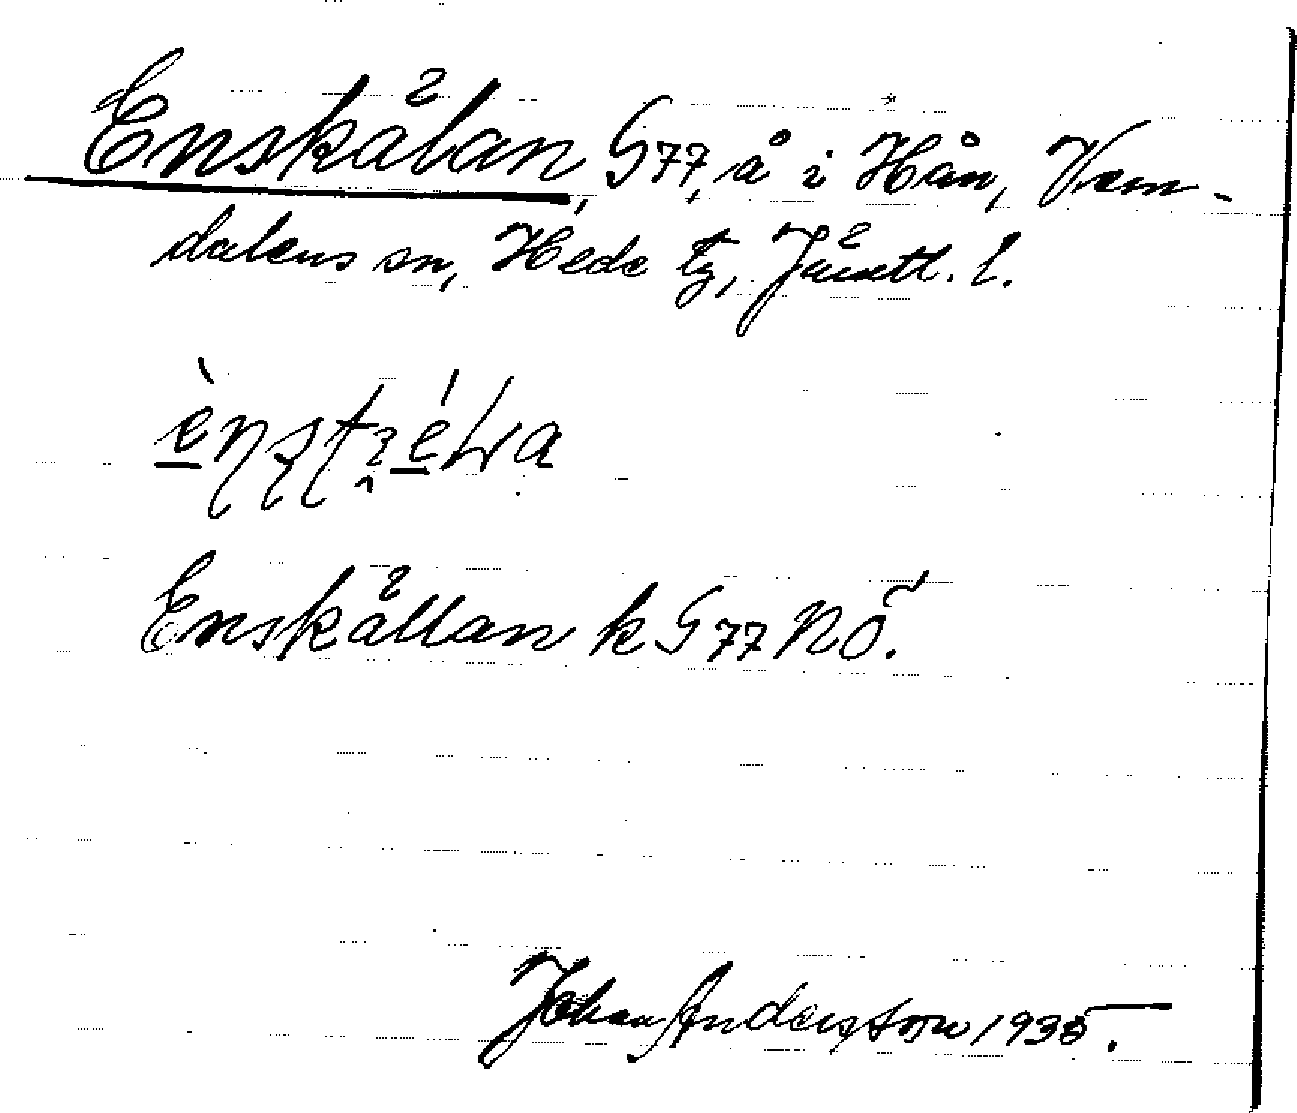 Enskålan, G77, å i Hån, Vem-
dalens sn, Hede tg, Jämtl. l.
Enskållan k G77 NÖ.
Johan Andersson 1935.